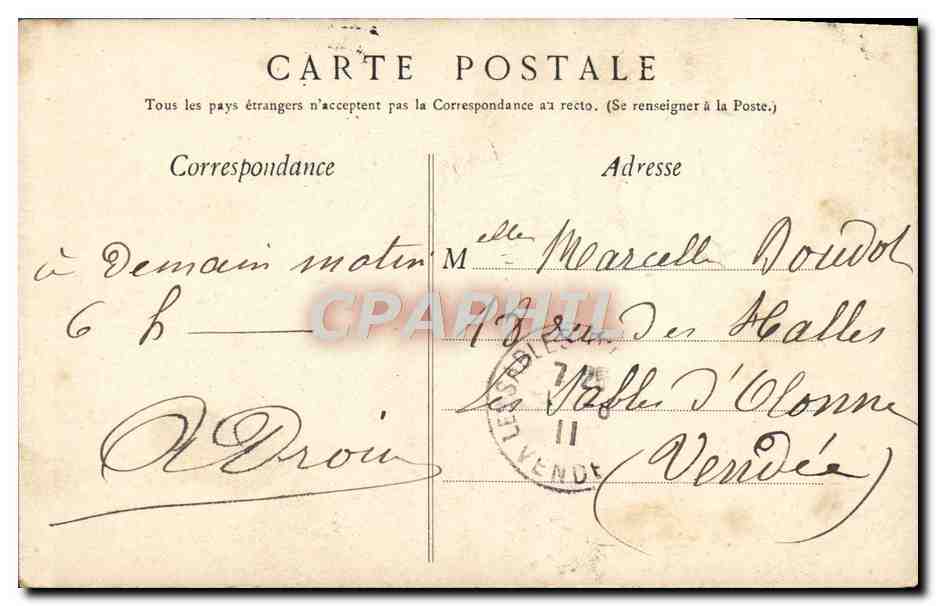 CARTE POSTALE
Tous les pays étrangers n'acceptent pas la Correspondance au recto. (Se renseigner à la Poste.)
Correspondance
à Demain matin
6 h
ADroin
Adresse
Melle Marcelle Boudot
rue des Halles
Les Sables d'Olonne
(Vendée)
LES SABLES
7 25
11
VENDE
CPAPHIL